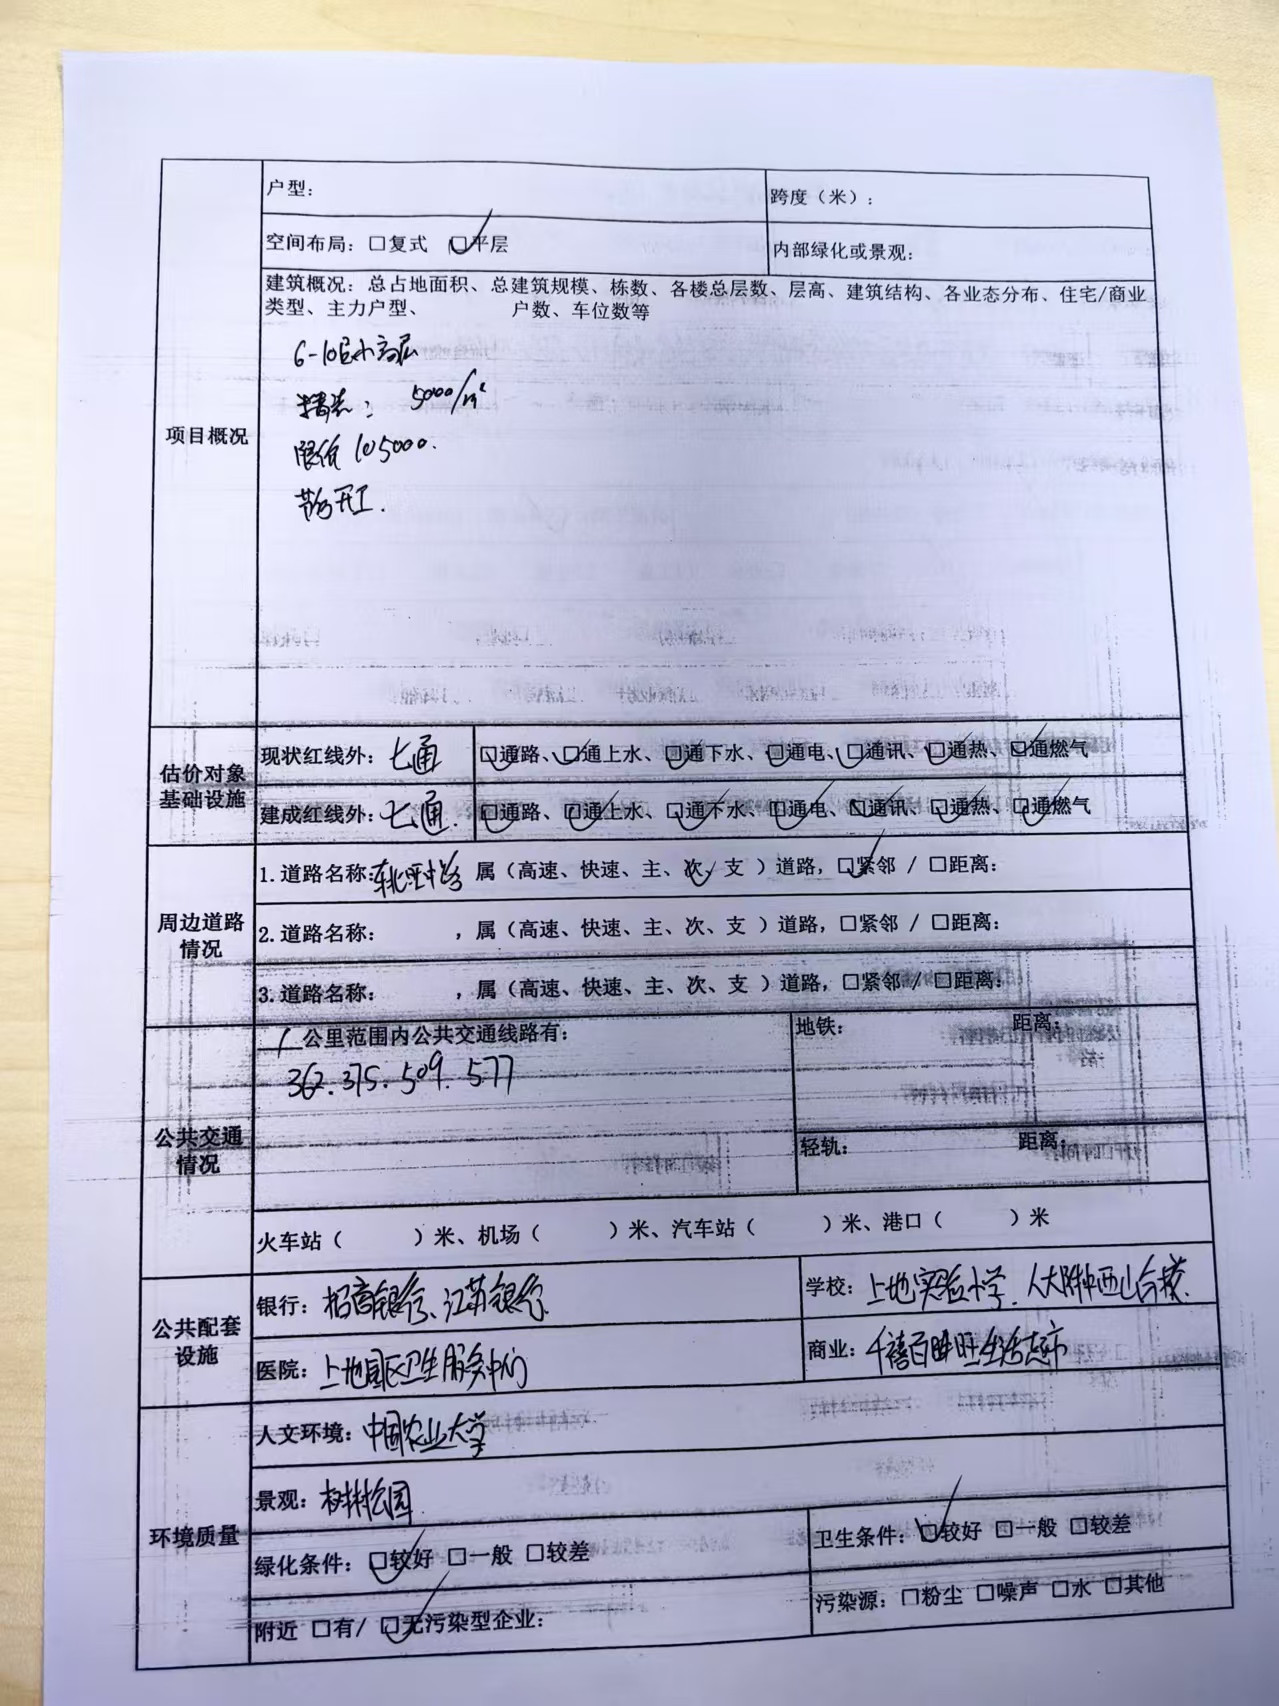 项目概况
户型：
跨度（米）：
空间布局：□复式 ☑平层
内部绿化或景观：
建筑概况：总占地面积、总建筑规模、栋数、各楼总层数、层高、建筑结构、各业态分布、住宅/商业
类型、主力户型、 户数、车位数等
6-10层小高层
精装： 5000/㎡
限价 105000.
开工.
估价对象
基础设施
现状红线外：七通
☑通路、☑通上水、☑通下水、☑通电、☑通讯、☑通热、☑通燃气
建成红线外：七通.
☑通路、☑通上水、☑通下水、☑通电、☑通讯、☑通热、☑通燃气
周边道路
情况
1.道路名称：东北旺中路 属（高速、快速、主、次、支 ）道路，☑紧邻 / □距离：
2.道路名称： ，属（高速、快速、主、次、支 ）道路，□紧邻 / □距离：
3.道路名称： ，属（高速、快速、主、次、支 ）道路，□紧邻 / □距离：
公共交通
情况
1 公里范围内公共交通线路有：
362.375.509.577
地铁： 距离：
轻轨： 距离：
火车站（ ）米、机场（ ）米、汽车站（ ）米、港口（ ）米
公共配套
设施
银行：招商银行、江苏银行
学校：上地实验小学.人大附中西山分校.
医院：上地社区卫生服务中心
商业：千禧百旺生活超市
环境质量
人文环境：中国农业大学
景观：树村公园
绿化条件：☑较好 □一般 □较差
卫生条件：☑较好 □一般 □较差
附近 □有/ ☑无污染型企业：
污染源：□粉尘 □噪声 □水 □其他